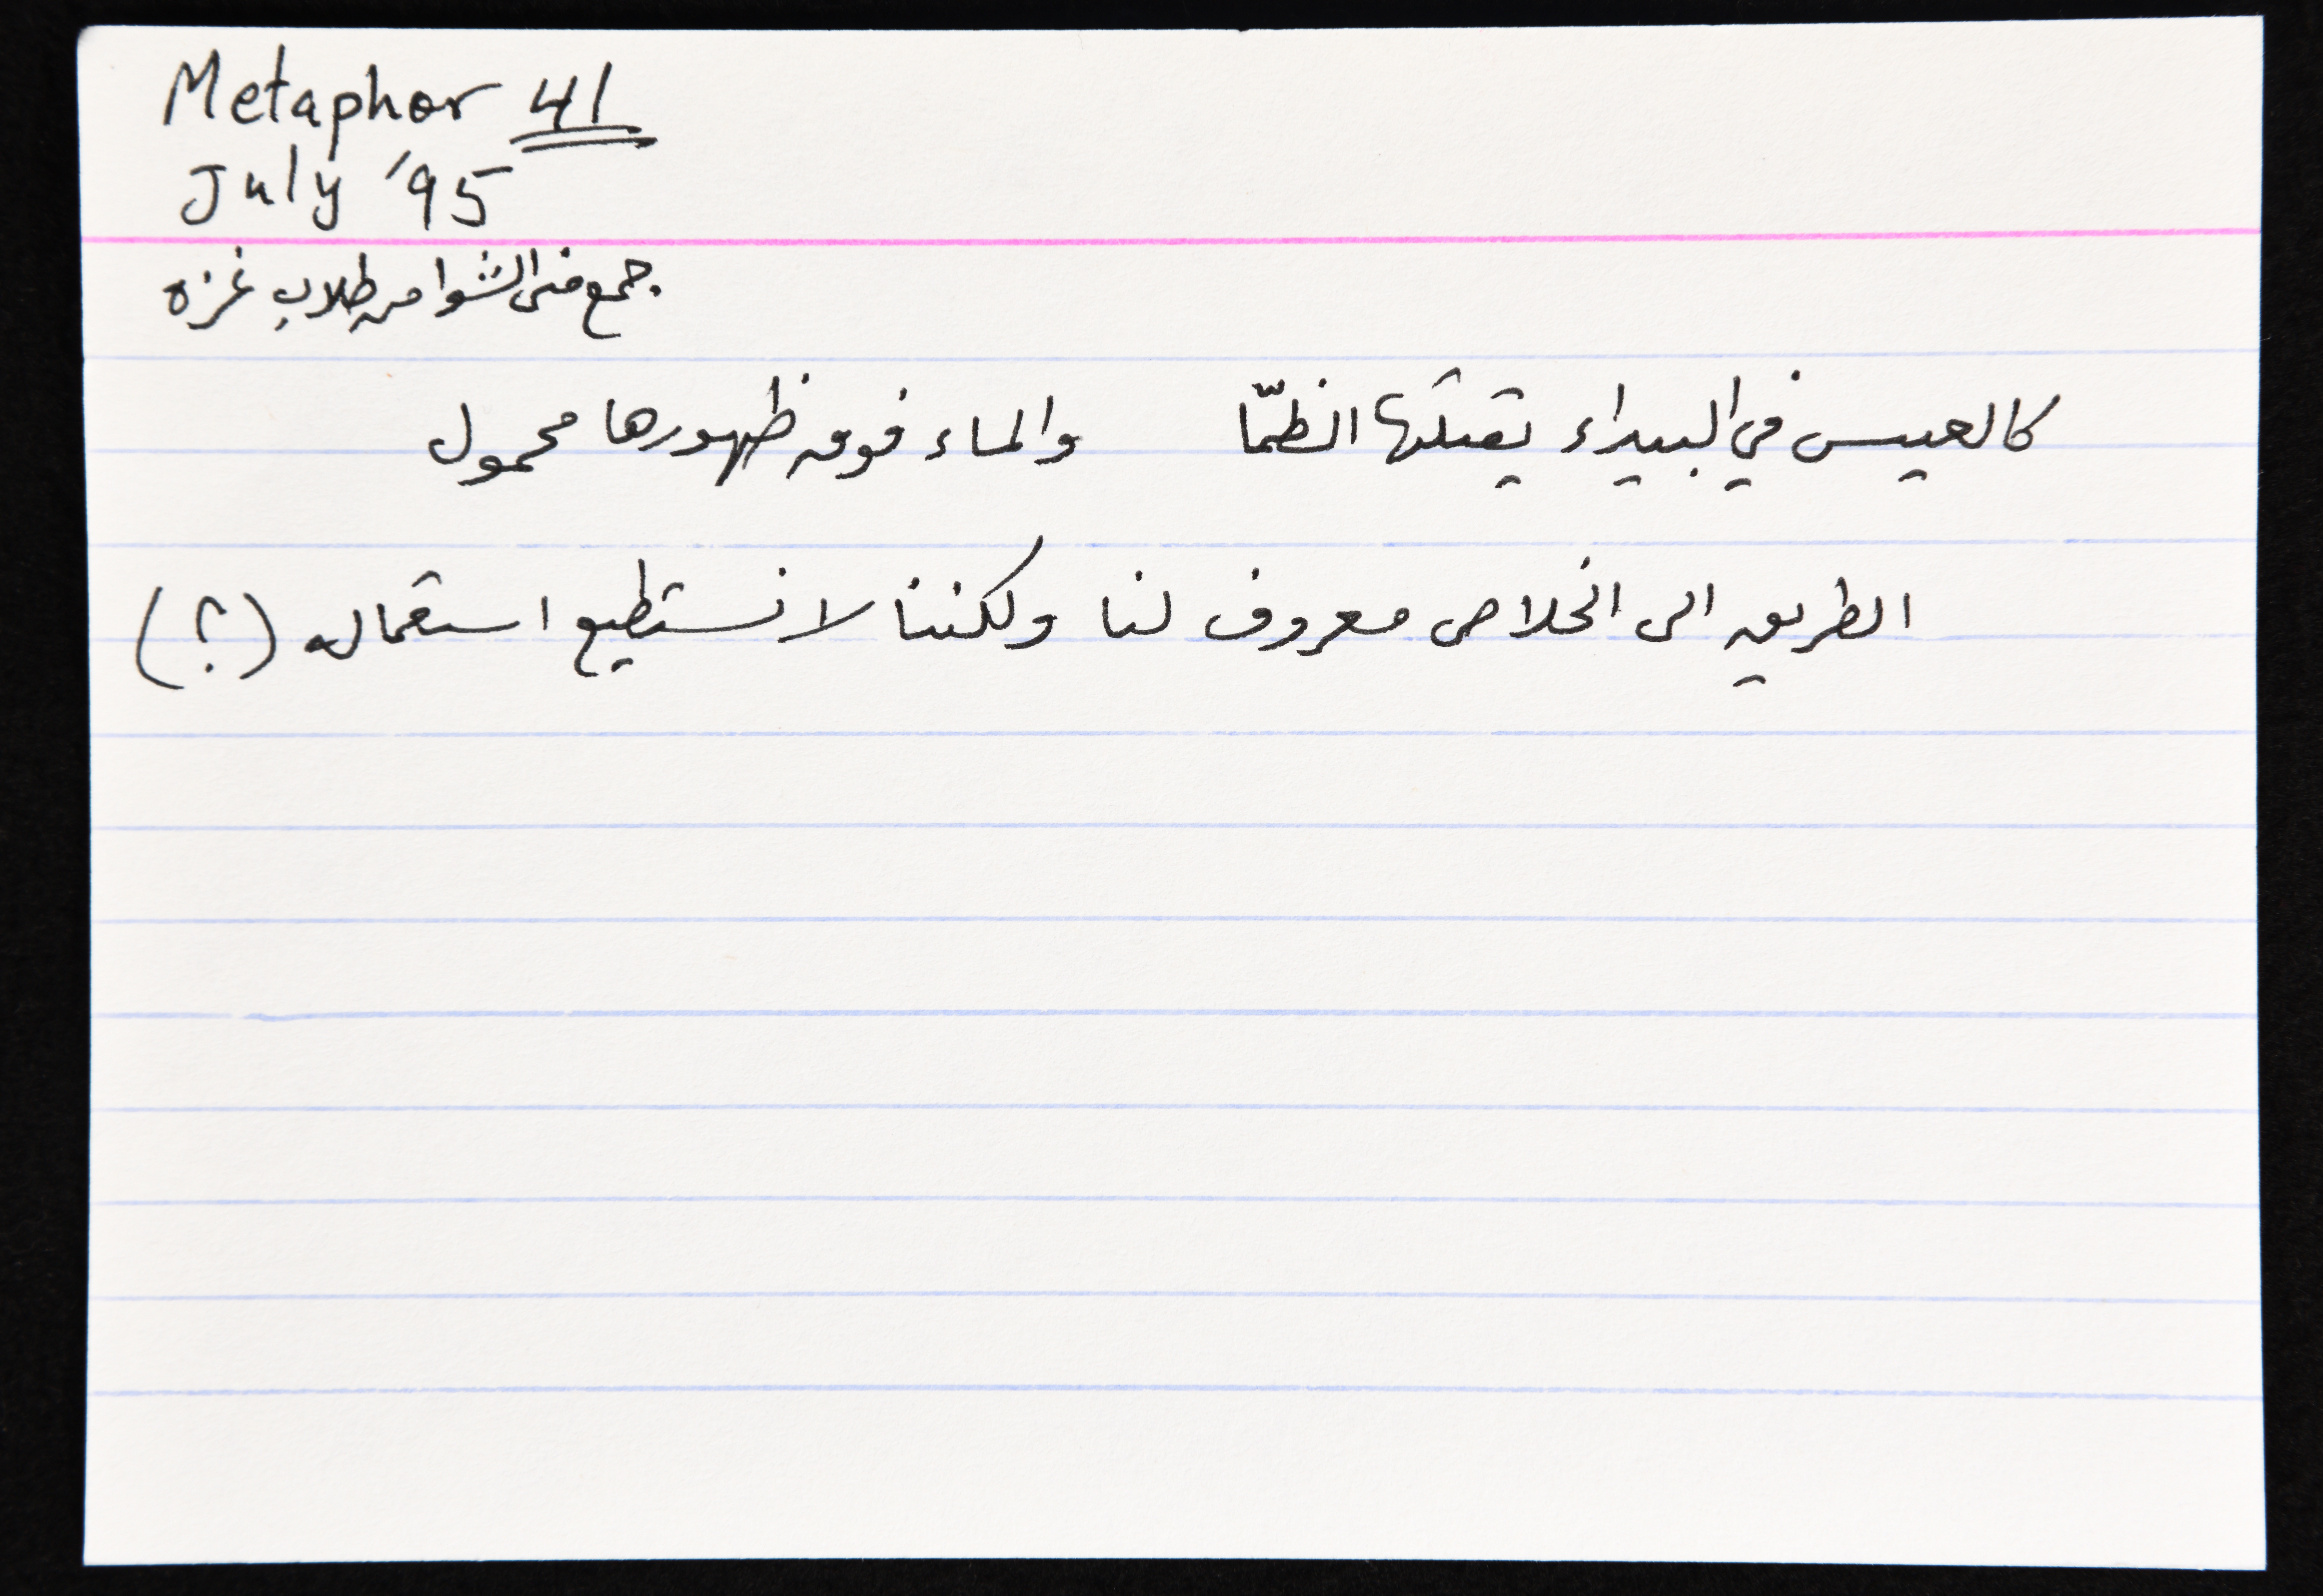 Metaphor 41
July '95
جمع منى الشوا من طلاب غزه
كالعيس في البيداء يقتلها الظمّا والماء فوق ظهورها محمول
الطريق الى الخلاص معروف لنا ولكننا لا نستطيع استعماله (؟)